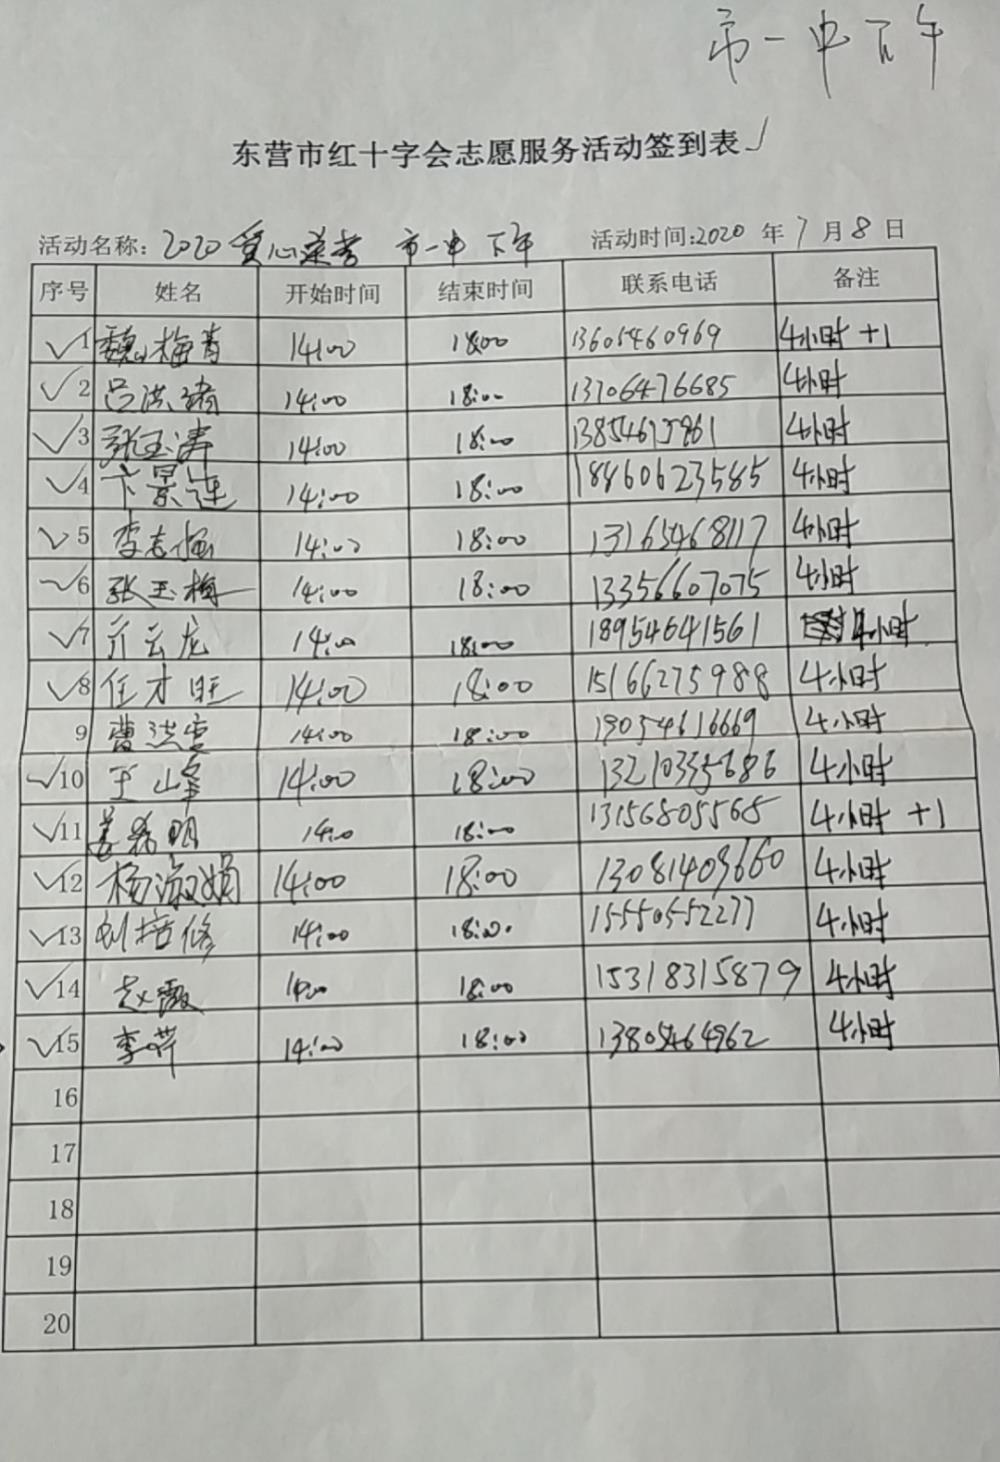 市一中下午
东营市红十字会志愿服务活动签到表√
活动名称：2020爱心送考 市一中 下午 活动时间:2020 年 7 月 8 日
序号 姓名 开始时间 结束时间 联系电话 备注
√1 魏梅青 14:00 18:00 13605460969 4小时+1
√2 吕洪绪 14:00 18:00 13706476685 4小时
√3 张玉涛 14:00 18:00 4小时
√4 卞景连 14:00 18:00 18460623585 4小时
√5 李志 14:00 18:00 13165468117 4小时
√6 张玉梅 14:00 18:00 13356607075 4小时
√7 亓云龙 14:00 18:00 18954641561 4小时
√8 任才旺 14:00 18:00 15166275988 4小时
9 曹洪 14:00 18:00 4小时
√10 王山峰 14:00 18:00 13210335686 4小时
√11 14:00 18:00 13156805568 4小时+1
√12 杨淑娟 14:00 18:00 13081409660 4小时
√13 刘培修 14:00 18:00 15550552277 4小时
√14 赵霞 14:00 18:00 15318315879 4小时
√15 李萍 14:00 18:00 13805464962 4小时
16
17
18
19
20